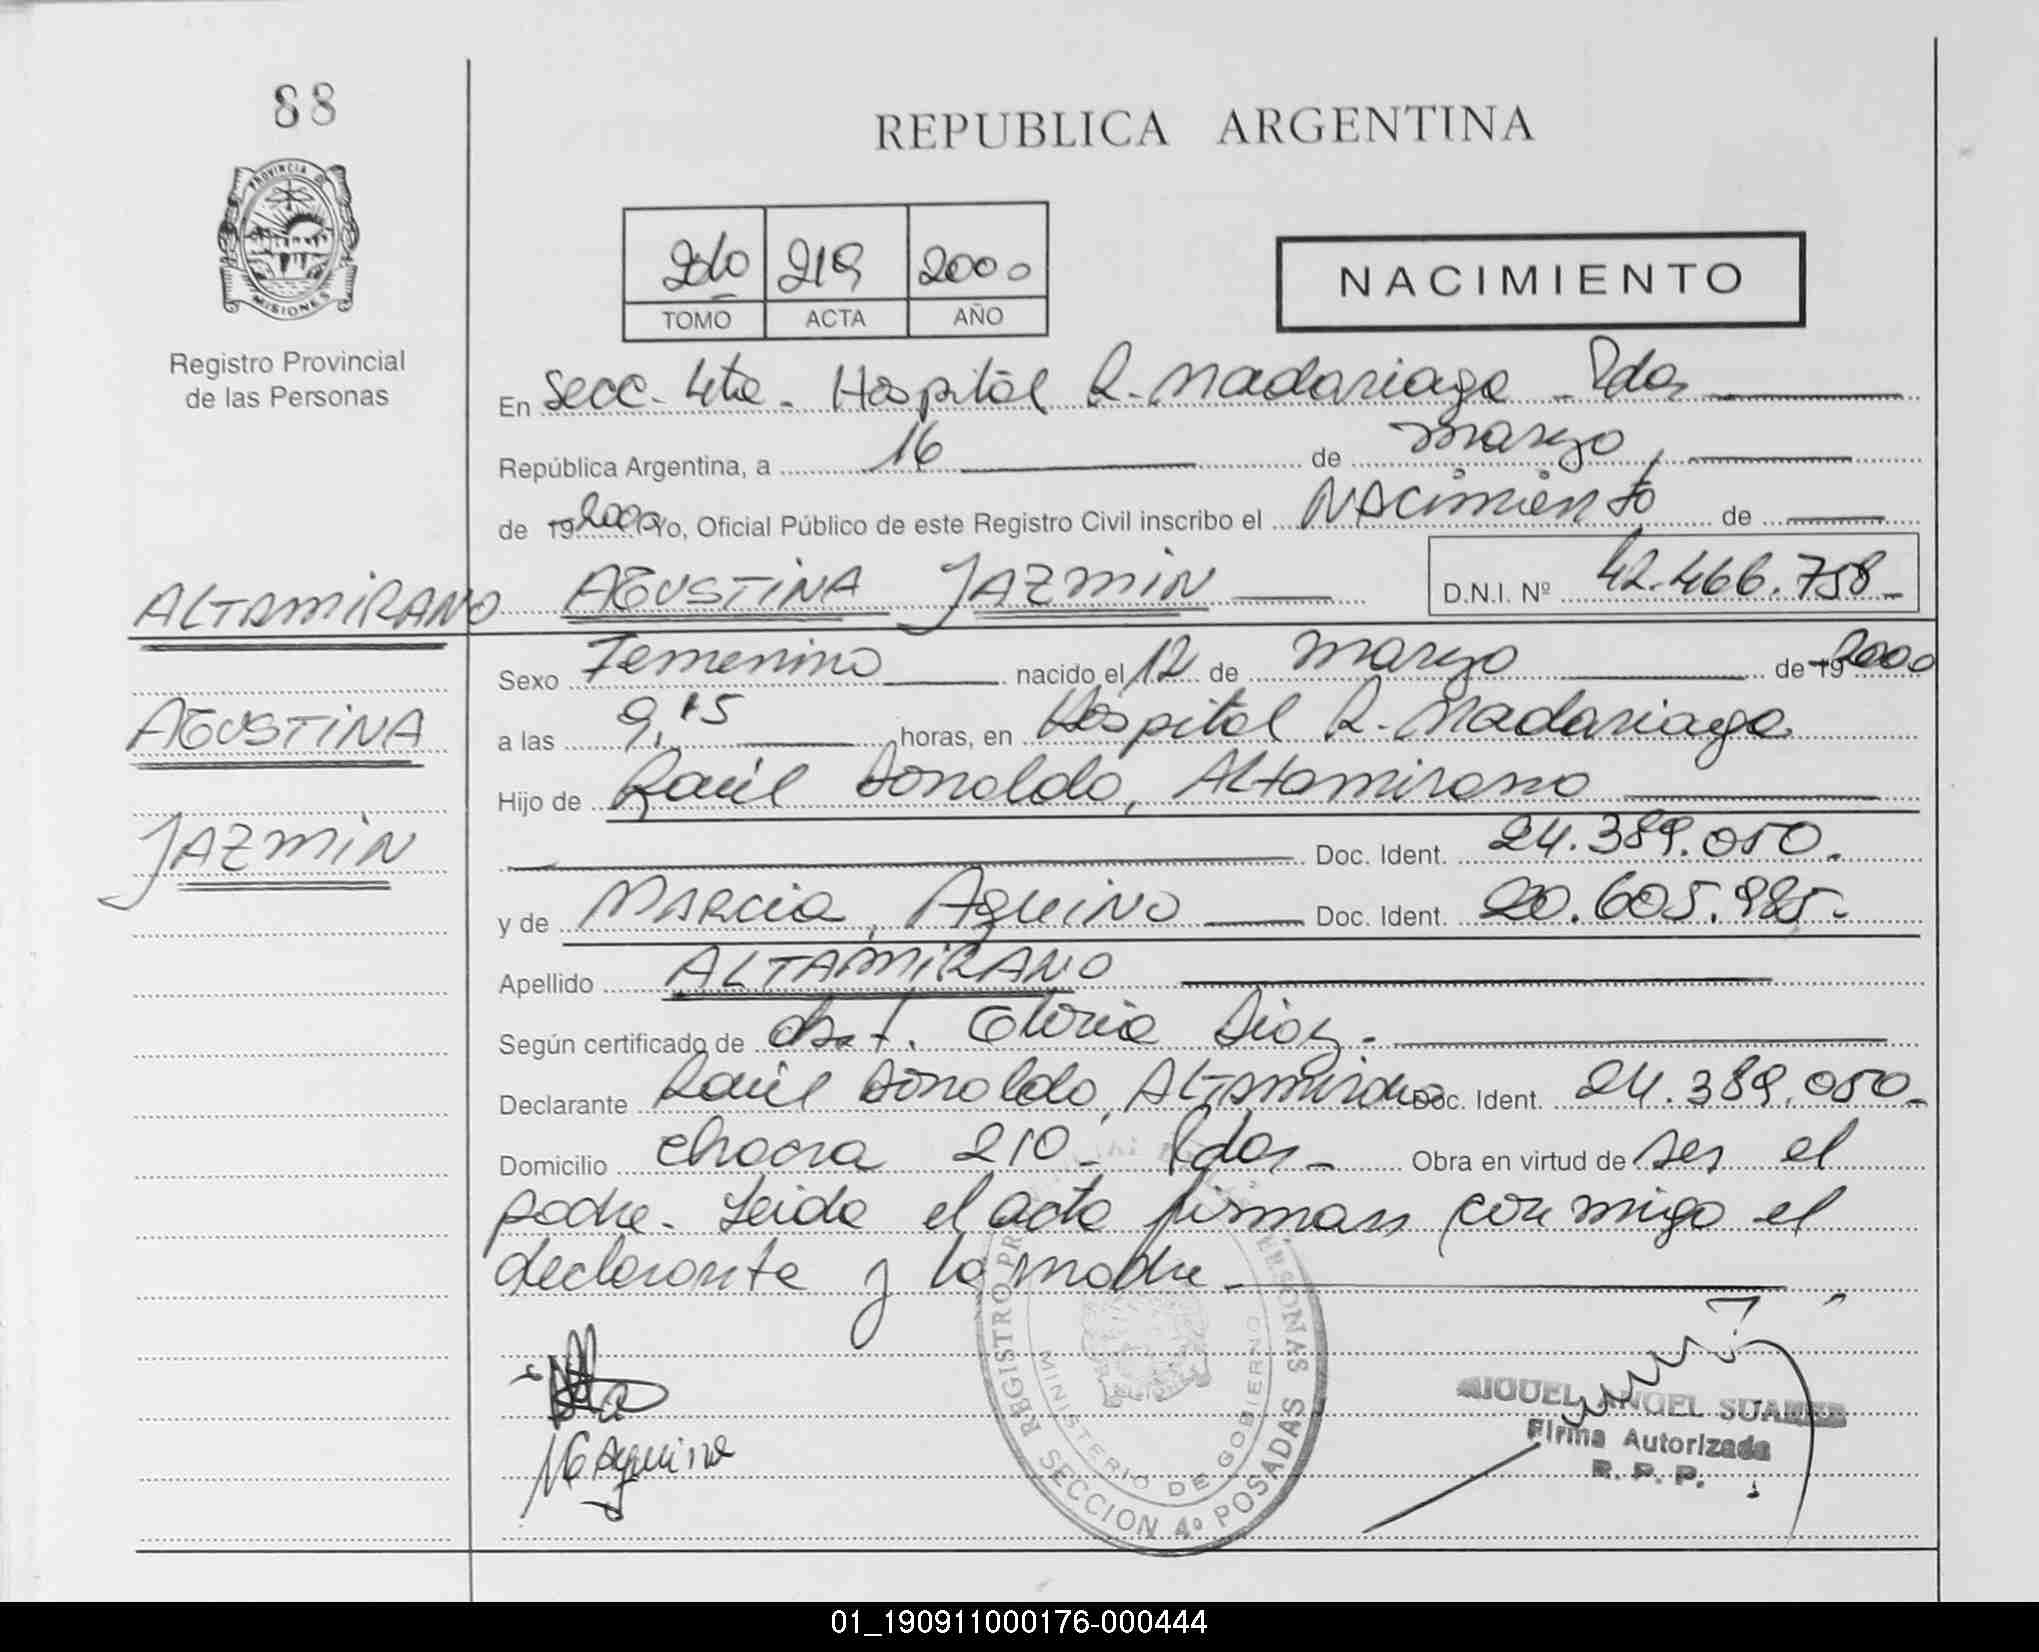 88
PROVINCIA DE
MISIONES
Registro Provincial
de las Personas
REPUBLICA ARGENTINA
2do 219 2000
TOMO ACTA AÑO
NACIMIENTO
En Secc. 4ta. Hospital R. Madariaga - Pdas
República Argentina, a 16 de marzo,
de 19 2000 yo, Oficial Público de este Registro Civil inscribo el NACimiento de
ALTAMIRANO AGUSTINA JAZMIN D.N.I. Nº 42.466.758-
Sexo Femenino nacido el 12 de marzo de 19 2000
AGUSTINA
a las 9,15 horas, en Hospital R. Madariaga
Hijo de Raúl Donaldo, Altamirano
JAZMIN
Doc. Ident. 24.389.050.
y de MARCiA, AquiNO Doc. Ident. 20.605.985.-
Apellido ALTAMIRANO
Según certificado de Obst. Gloria Dioz.-
Declarante Raúl Donaldo, ALTAmirano Doc. Ident. 24.389.050.-
Domicilio chacra 210- Pdas- Obra en virtud de ser el
padre. Leida el acta firman conmigo el
declarante y la madre.-
MG Aquino
REGISTRO PR PERSONAS
MINISTERIO DE GOBIERNO
SECCION 4º POSADAS
MIGUEL ANGEL SUAREZ
Firma Autorizada
R. P. P.
01_190911000176-000444